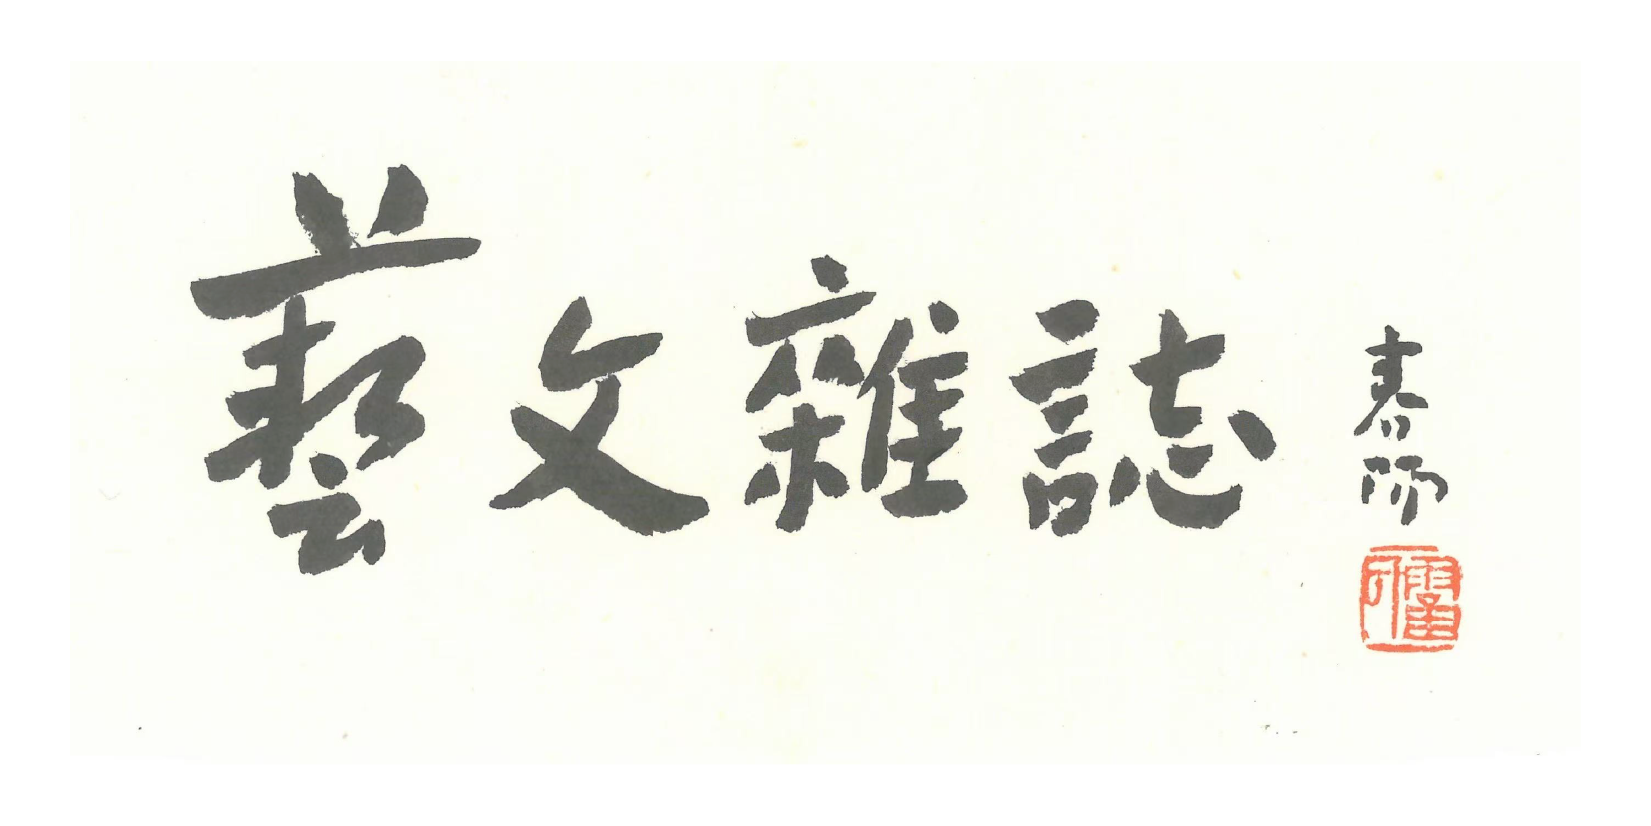 藝文雜誌
春陽